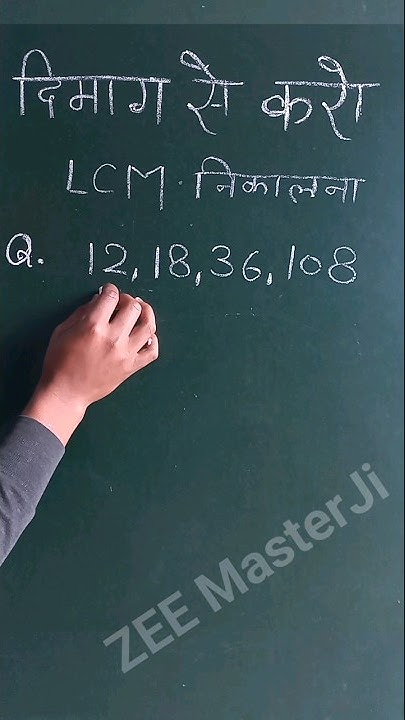 दिमाग से करो
LCM. निकालना
Q. 12, 18, 36, 108
ZEE MasterJi